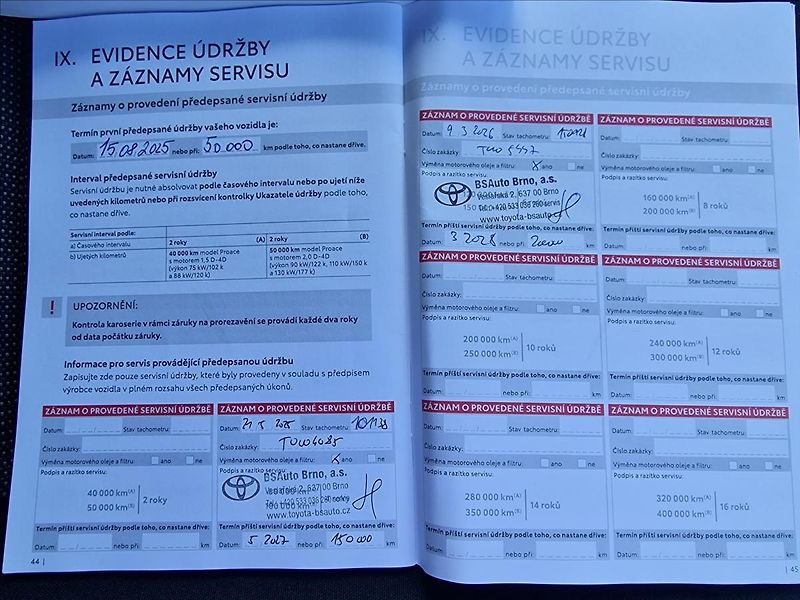 IX. EVIDENCE ÚDRŽBY
A ZÁZNAMY SERVISU
Záznamy o provedení předepsané servisní údržby
Termín první předepsané údržby vašeho vozidla je:
Datum: 15.08.2025 nebo při: 50.000 km podle toho, co nastane dříve.
Interval předepsané servisní údržby
Servisní údržbu je nutné absolvovat podle časového intervalu nebo po ujetí níže
uvedených kilometrů nebo při rozsvícení kontrolky Ukazatele údržby podle toho,
co nastane dříve.
Servisní interval podle:
a) Časového intervalu 2 roky (A) 2 roky (B)
b) Ujetých kilometrů 40 000 km model Proace 50 000 km model Proace
s motorem 1,5 D-4D s motorem 2,0 D-4D
(výkon 75 kW/102 k (výkon 90 kW/122 k, 110 kW/150 k
a 88 kW/120 k) a 130 kW/177 k)
! UPOZORNĚNÍ:
Kontrola karoserie v rámci záruky na prorezavění se provádí každé dva roky
od data počátku záruky.
Informace pro servis provádějící předepsanou údržbu
Zapisujte zde pouze servisní údržby, které byly provedeny v souladu s předpisem
výrobce vozidla v plném rozsahu všech předepsaných úkonů.
ZÁZNAM O PROVEDENÉ SERVISNÍ ÚDRŽBĚ
Datum: Stav tachometru:
Číslo zakázky:
Výměna motorového oleje a filtru: ano ne
Podpis a razítko servisu:
40 000 km(A)
50 000 km(B)
2 roky
Termín příští servisní údržby podle toho, co nastane dříve:
Datum: nebo při: km
ZÁZNAM O PROVEDENÉ SERVISNÍ ÚDRŽBĚ
Datum: 21 5 2025 Stav tachometru:
Číslo zakázky:
Výměna motorového oleje a filtru: ano ne
Podpis a razítko servisu:
BSAuto Brno, a.s.
www.toyota-bsauto.cz
Termín příští servisní údržby podle toho, co nastane dříve:
Datum: 5 2027 nebo při: 150 000 km
44 |
IX. EVIDENCE ÚDRŽBY
A ZÁZNAMY SERVISU
Záznamy o provedení předepsané servisní údržby
ZÁZNAM O PROVEDENÉ SERVISNÍ ÚDRŽBĚ
Datum: 9 3 2026 Stav tachometru:
Číslo zakázky:
Výměna motorového oleje a filtru: X ano ne
Podpis a razítko servisu:
BSAuto Brno, a.s.
Vestařská 2, 637 00 Brno
Tel.: +420 533 036 260 servis
www.toyota-bsauto
Termín příští servisní údržby podle toho, co nastane dříve:
Datum: 3 2028 nebo při: 200000 km
ZÁZNAM O PROVEDENÉ SERVISNÍ ÚDRŽBĚ
Datum: Stav tachometru:
Číslo zakázky:
Výměna motorového oleje a filtru: ano ne
Podpis a razítko servisu:
160 000 km(A)
200 000 km(B)
8 roků
Termín příští servisní údržby podle toho, co nastane dříve:
Datum: nebo při: km
ZÁZNAM O PROVEDENÉ SERVISNÍ ÚDRŽBĚ
Datum: Stav tachometru:
Číslo zakázky:
Výměna motorového oleje a filtru: ano ne
Podpis a razítko servisu:
200 000 km(A)
250 000 km(B)
10 roků
Termín příští servisní údržby podle toho, co nastane dříve:
Datum: nebo při: km
ZÁZNAM O PROVEDENÉ SERVISNÍ ÚDRŽBĚ
Datum: Stav tachometru:
Číslo zakázky:
Výměna motorového oleje a filtru: ano ne
Podpis a razítko servisu:
240 000 km(A)
300 000 km(B)
12 roků
Termín příští servisní údržby podle toho, co nastane dříve:
Datum: nebo při: km
ZÁZNAM O PROVEDENÉ SERVISNÍ ÚDRŽBĚ
Datum: Stav tachometru:
Číslo zakázky:
Výměna motorového oleje a filtru: ano ne
Podpis a razítko servisu:
280 000 km(A)
350 000 km(B)
14 roků
Termín příští servisní údržby podle toho, co nastane dříve:
Datum: nebo při: km
ZÁZNAM O PROVEDENÉ SERVISNÍ ÚDRŽBĚ
Datum: Stav tachometru:
Číslo zakázky:
Výměna motorového oleje a filtru: ano ne
Podpis a razítko servisu:
320 000 km(A)
400 000 km(B)
16 roků
Termín příští servisní údržby podle toho, co nastane dříve:
Datum: nebo při: km
| 45